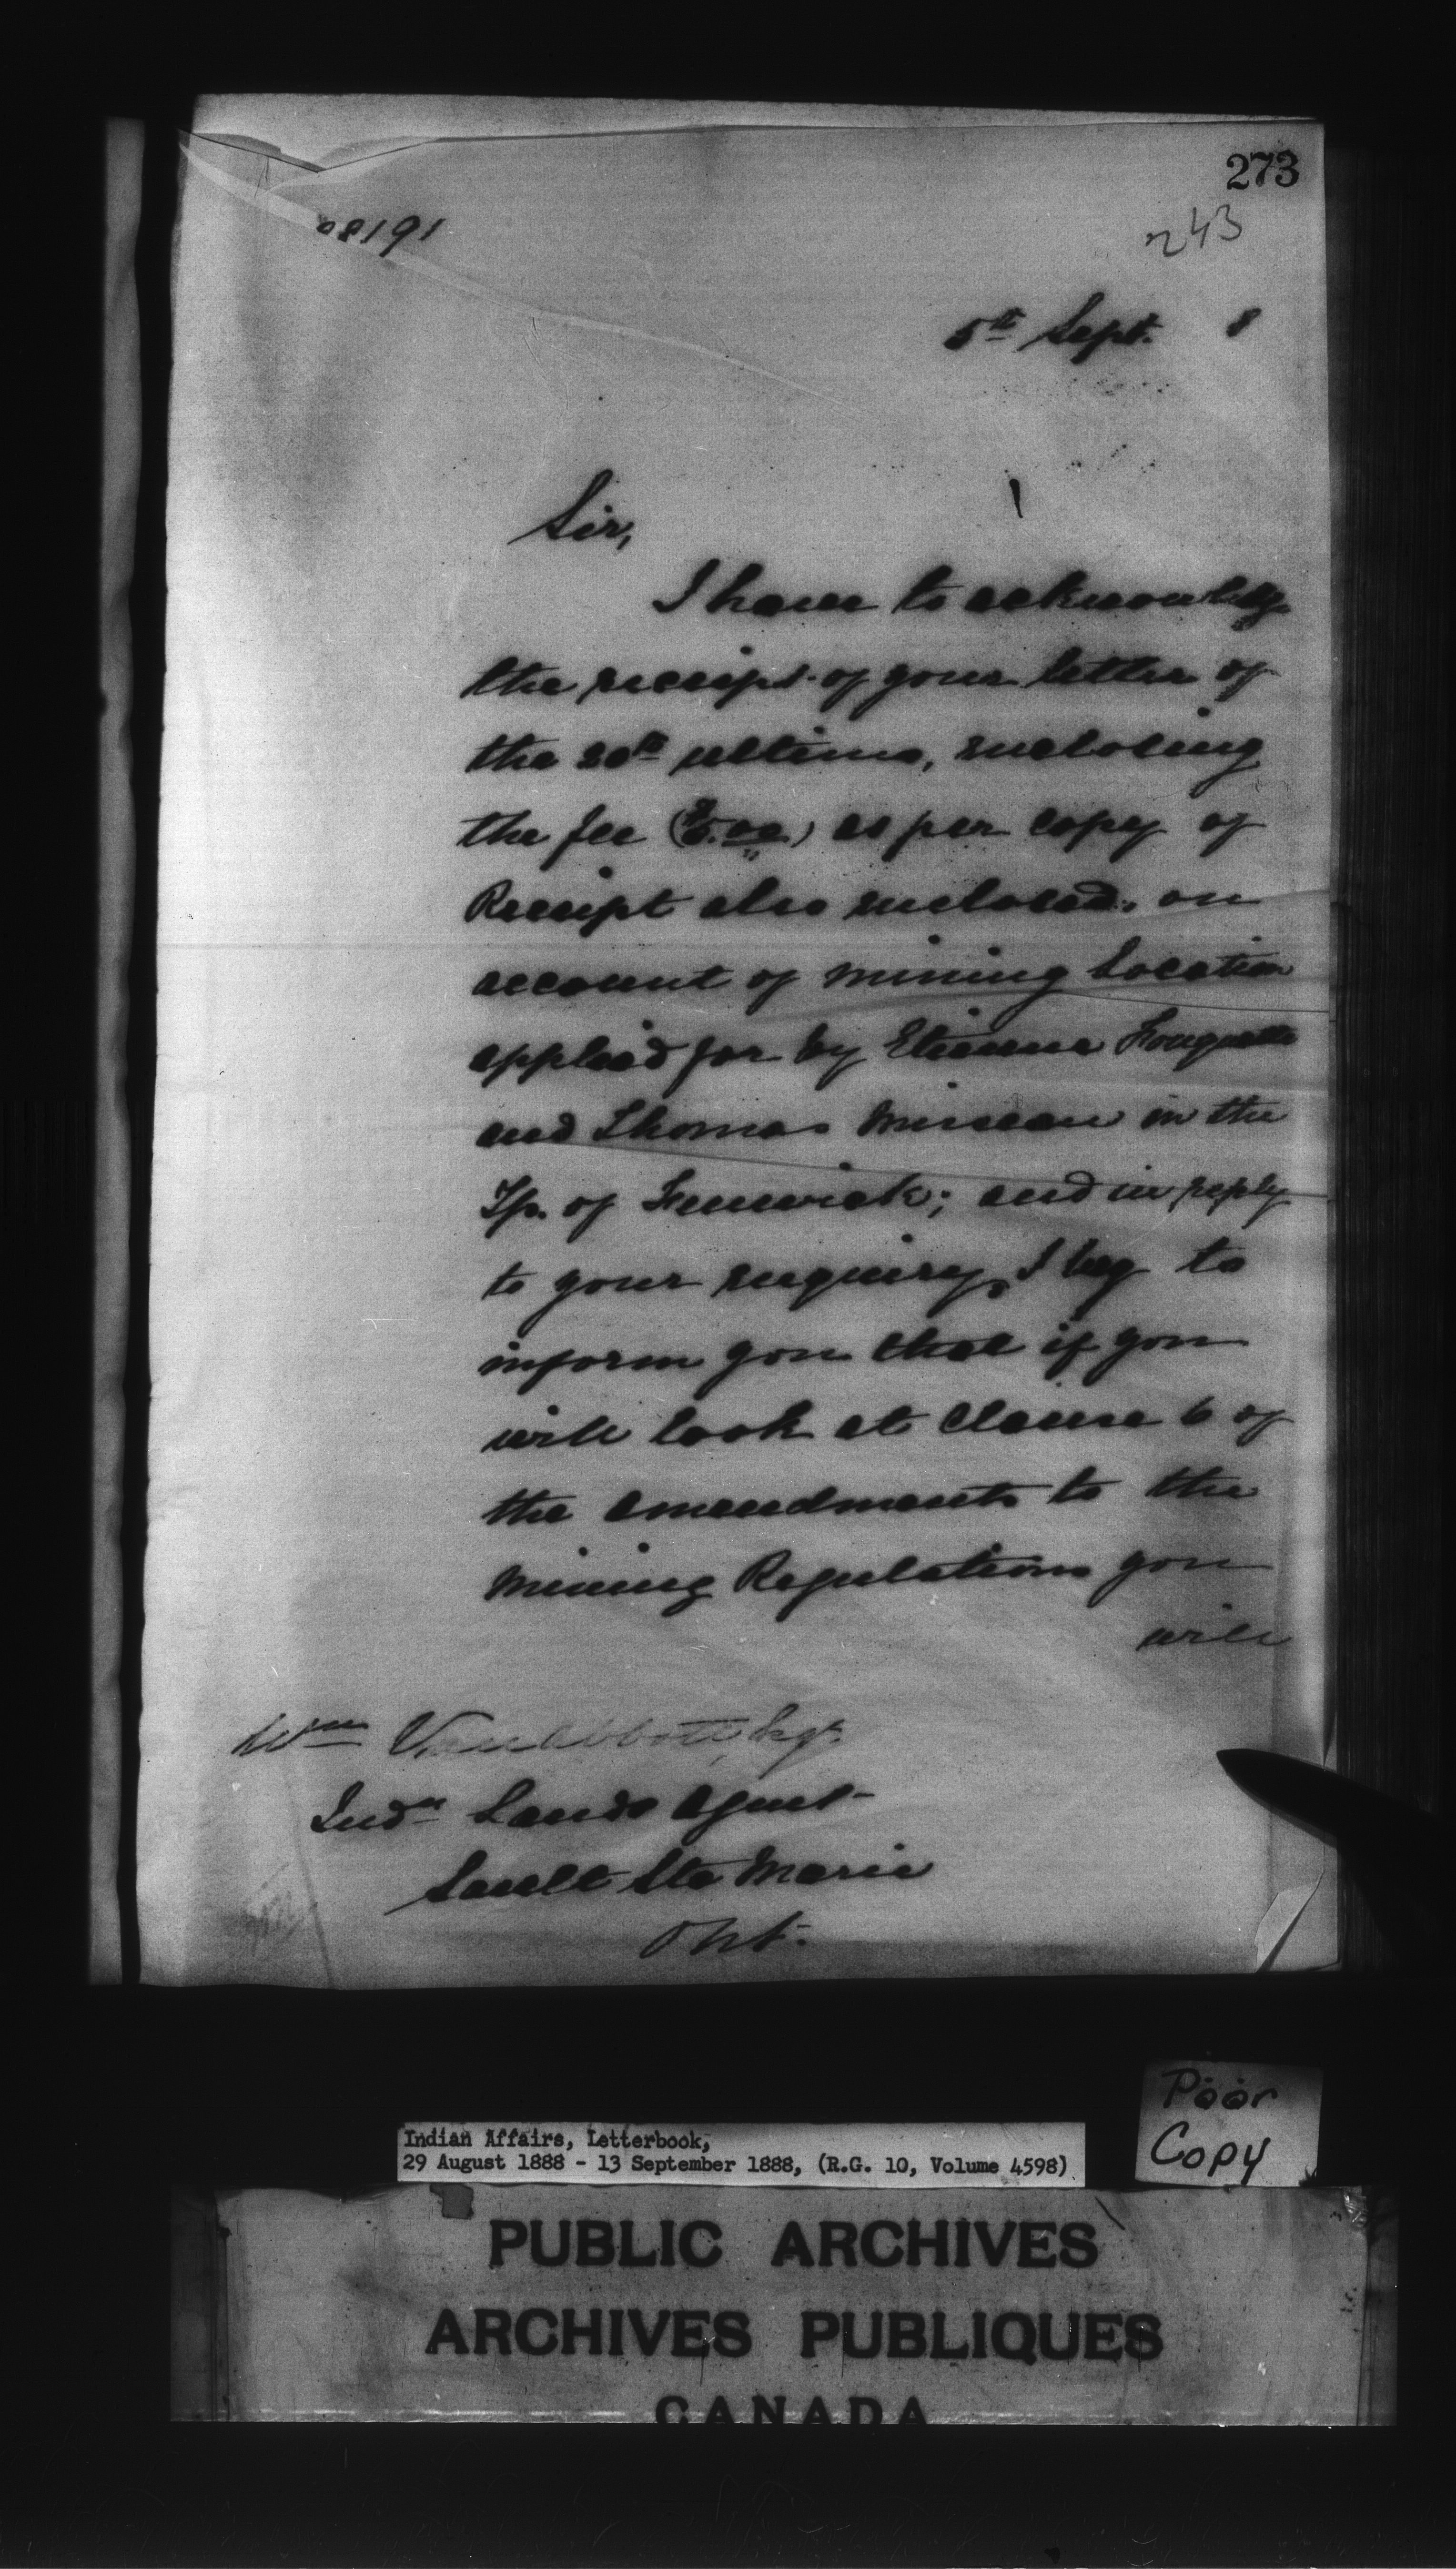 273
243
08191
5th Sept. 8
Sir,
I have to acknowledge
the receipt of your letter of
the 20th ultimo, enclosing
the fee ($5.00) as per copy of
Receipt also enclosed, on
account of Mining Location
applied for by Etienne
and Thomas in the
Tp. of Fenwick; and in reply
to your enquiry, I beg to
inform you that if you
will look at Clause 6 of
the amendments to the
Mining Regulations you
will
Wm Van Abbott, Esq.
Indn Lands Agent
Sault Ste Marie
Ont.
Poor
Copy
Indian Affairs, Letterbook,
29 August 1888 - 13 September 1888, (R.G. 10, Volume 4598)
PUBLIC ARCHIVES
ARCHIVES PUBLIQUES
CANADA